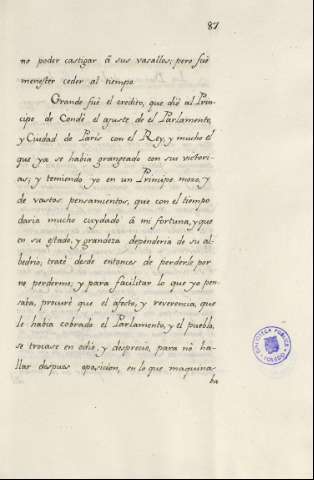 87
no poder castigar â sus vasallos; pero fuè
menester ceder al tiempo
Grande fuè el credito, que diò al Prin-
cipe de Condè el ajuste de el Parlamento,
y Ciudad de Paris con el Rey, y mucho el
que ya se habia grangeado con sus victori-
as; y temiendo yo en un Principe mozo, y
de vastos pensamientos, que con el tiempo
daria mucho cuydado â mi fortuna, y que
en su estado, y grandeza dependeria de su al-
bedrio, tratè desde entonces de perderle por
no perderme; y para facilitar lo que yo pen-
saba, procurè que el afecto, y reverencia, que
le habia cobrado el Parlamento, y el pueblo,
se trocase en odio, y desprecio, para no ha-
llar despues oposicion, en lo que maquina-
ba
BIBLIOTECA PUBLICA
TOLEDO